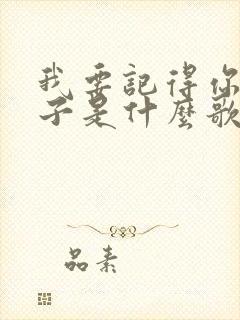 我要記得你
子是什麼歌
品素